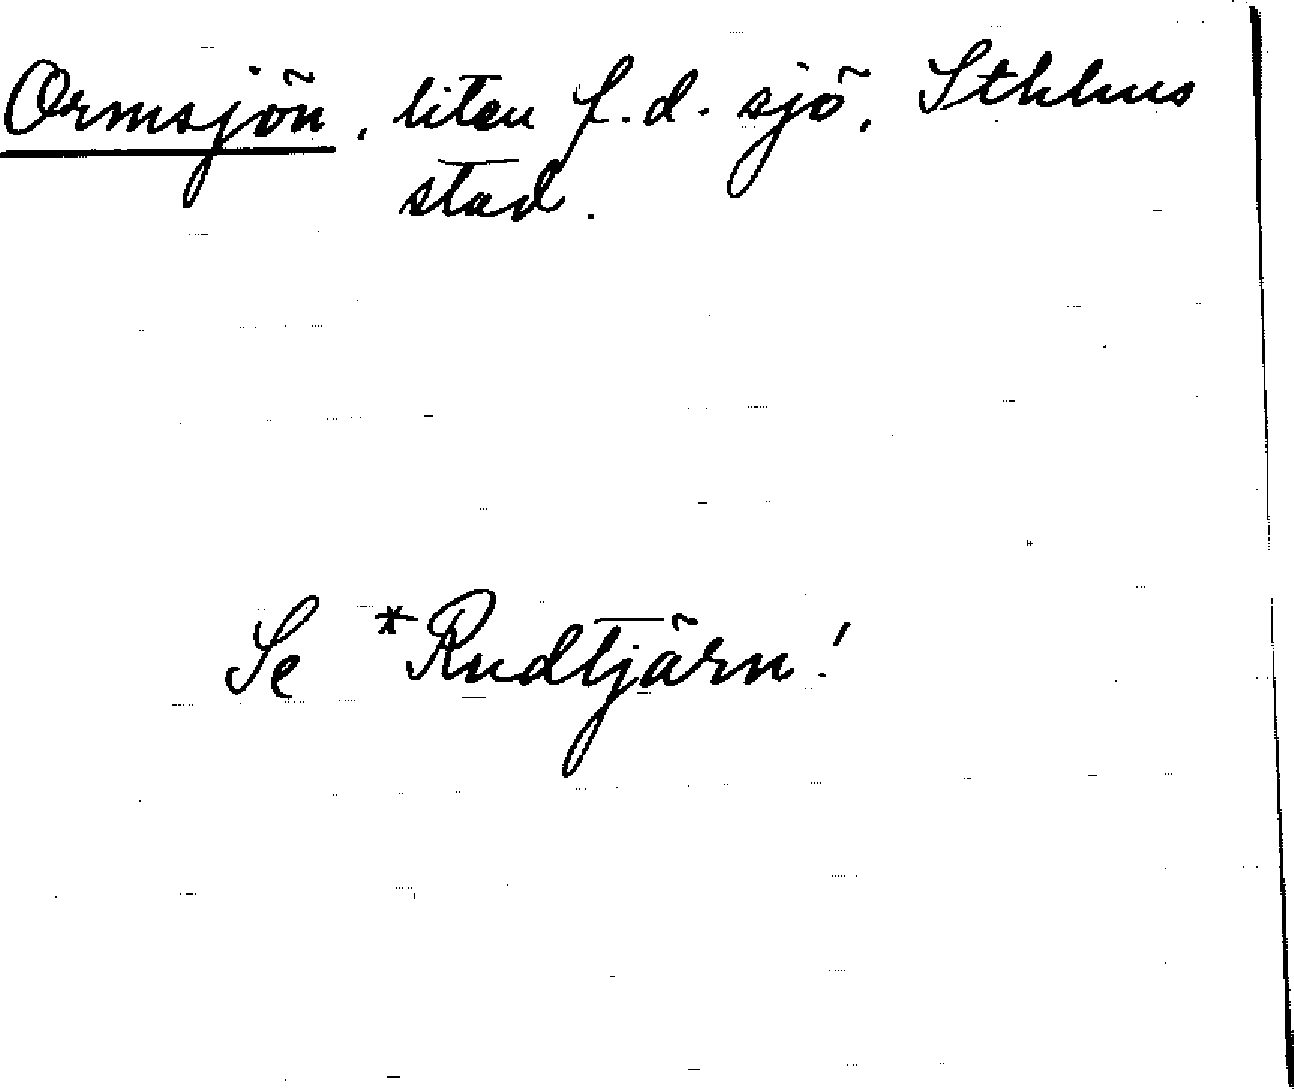 Ormsjön, liten f.d. sjö, Sthlms
stad.
Se *Rudtjärn!